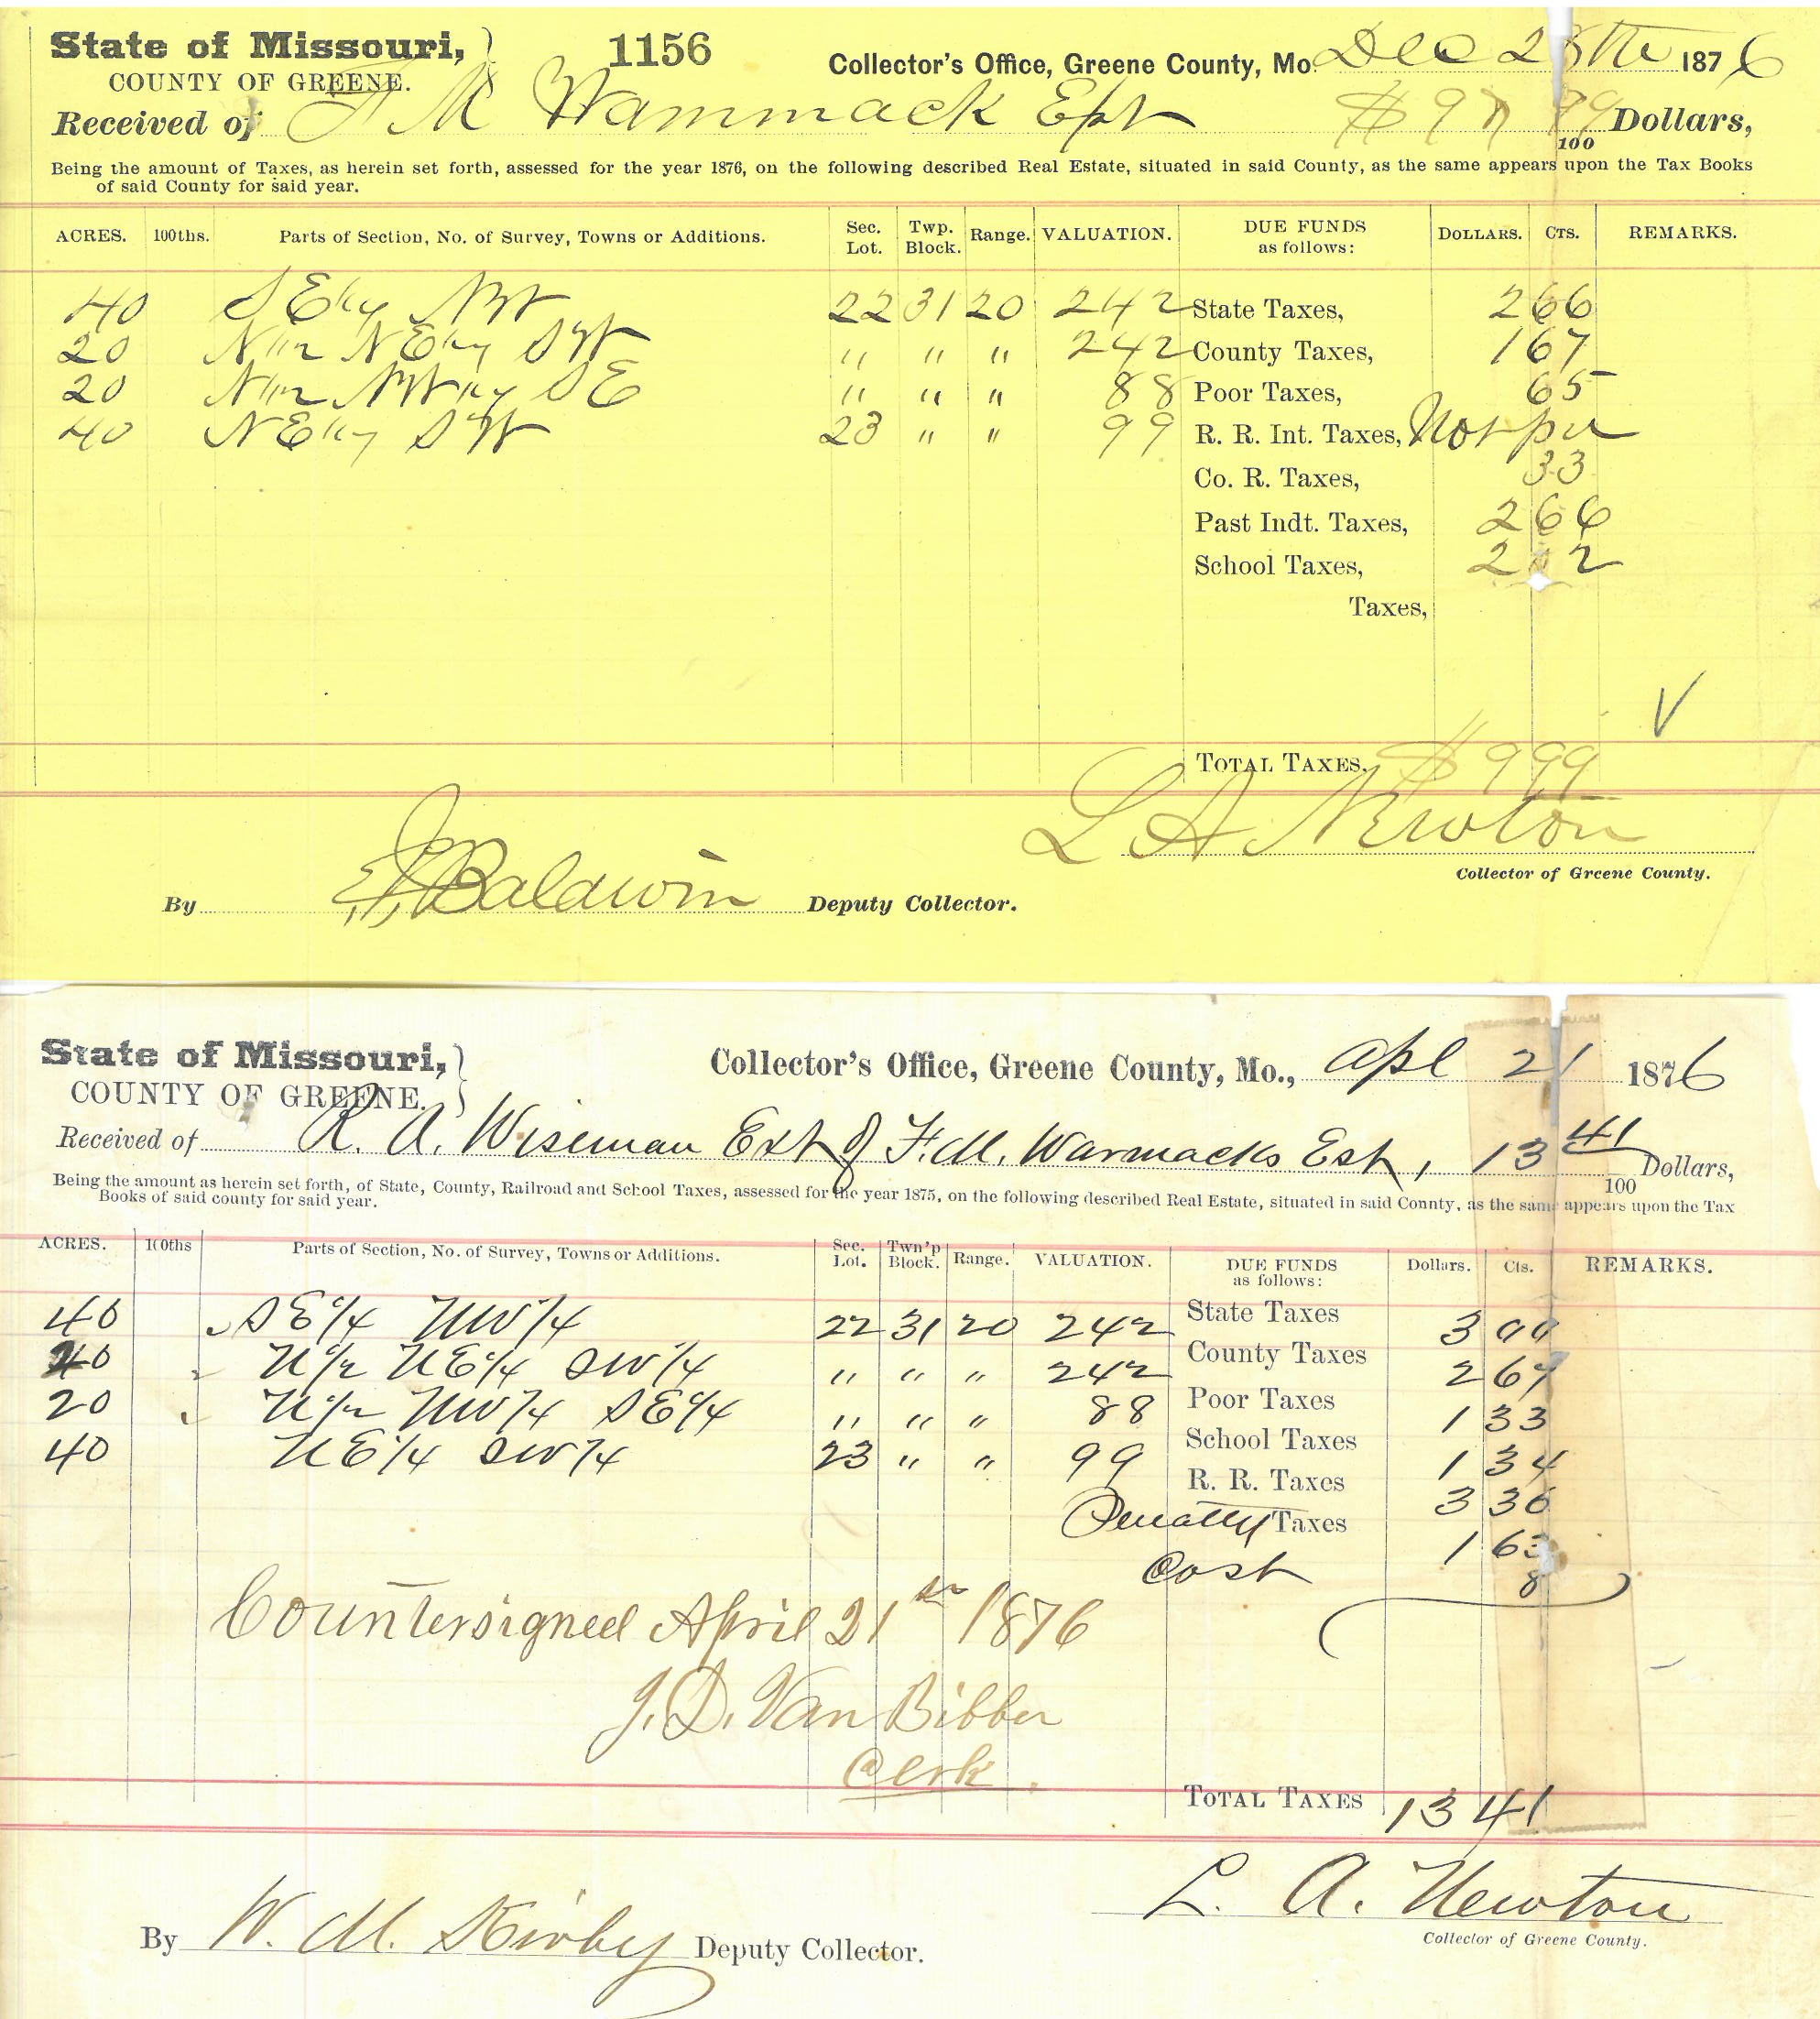 State of Missouri, 1156 Collector's Office, Greene County, Mo. Dec 28th 1876
COUNTY OF GREENE.
Received of F M Wammack Est $9 99/100 Dollars,
Being the amount of Taxes, as herein set forth, assessed for the year 1876, on the following described Real Estate, situated in said County, as the same appears upon the Tax Books
of said County for said year.
ACRES. 100ths. Parts of Section, No. of Survey, Towns or Additions. Sec. Lot. Twp. Block. Range. VALUATION. DUE FUNDS as follows: DOLLARS. CTS. REMARKS.
40 SE 1/4 NW 22 31 20 242 State Taxes, 2 66
20 N 1/2 NE 1/4 SW " " " 242 County Taxes, 1 67
20 N 1/2 NW 1/4 SE " " " 88 Poor Taxes, 65
40 NE 1/4 SW 23 " " 99 R. R. Int. Taxes, Not
Co. R. Taxes, 33
Past Indt. Taxes, 2 66
School Taxes, 2 2
Taxes,
TOTAL TAXES, $9 99
L A Newton
Collector of Greene County.
By Baldwin Deputy Collector.
State of Missouri, Collector's Office, Greene County, Mo., Apl 21 1876
COUNTY OF GREENE.
Received of R. A. Wiseman Ext of F. M. Warmacks Est, 13 41/100 Dollars,
Being the amount as herein set forth, of State, County, Railroad and School Taxes, assessed for the year 1875, on the following described Real Estate, situated in said Connty, as the same appears upon the Tax
Books of said county for said year.
ACRES. 100ths Parts of Section, No. of Survey, Towns or Additions. Sec. Lot. Twn'p Block. Range. VALUATION. DUE FUNDS as follows: Dollars. Cts. REMARKS.
40 SE 1/4 NW 1/4 22 31 20 242 State Taxes 3 00
20 N 1/2 NE 1/4 SW 1/4 " " " 242 County Taxes 2 67
20 N 1/2 NW 1/4 SE 1/4 " " " 88 Poor Taxes 1 33
40 NE 1/4 SW 1/4 23 " " 99 School Taxes 1 34
R. R. Taxes 3 36
Penalty Taxes 1 63
Cost 8
Countersigned April 21st 1876
J. D. Van Bibber
Clerk.
TOTAL TAXES 13 41
L. A. Newton
Collector of Greene County.
By W. M. Kirby Deputy Collector.